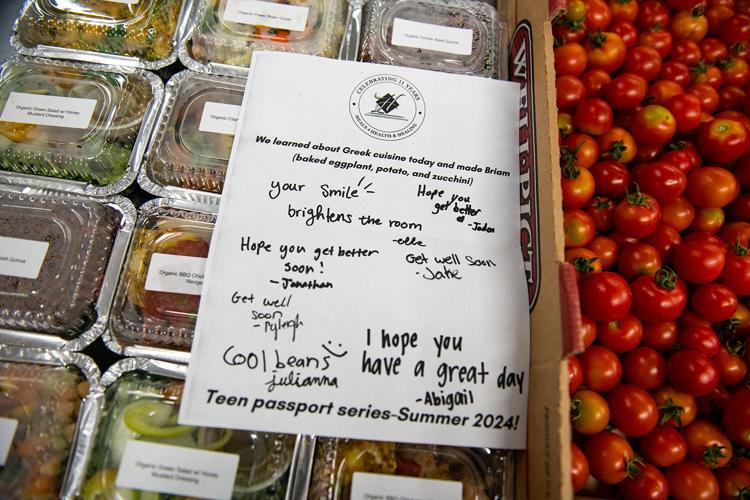 Organic Tomato Basil Quinoa
Organic Green Salad w/ Honey
Mustard Dressing
CELEBRATING 11 YEARS
MEALS • HEALTH & HEALING
We learned about Greek cuisine today and made Briam
(baked eggplant, potato, and zucchini)
your smile
brightens the room
-elle
Hope you
get better
-Jaden
Hope you get better
soon!
-Jonathan
Get well soon
-Jake
Get well
soon
-Ryleigh
Cool beans
julianna
I hope you
have a great day
-Abigail
Teen passport series-Summer 2024!
Quinoa
Organic BBQ
Organic Green Salad w/ Honey
Mustard Dressing
Organic BBQ